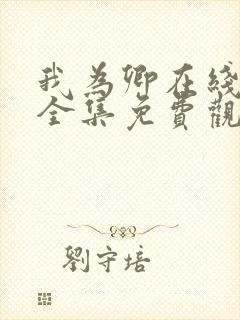 我為卿在綫
全集免費觀
劉守培